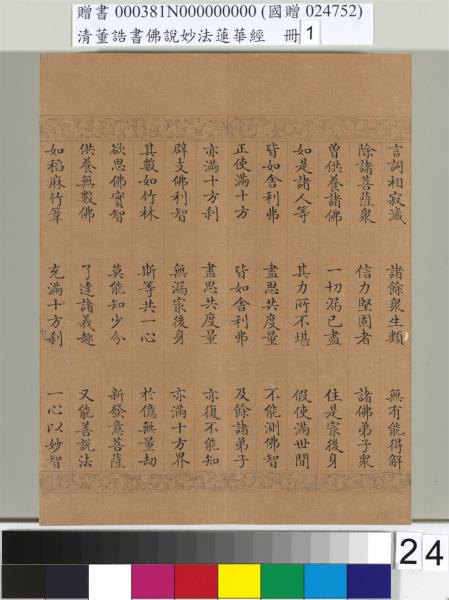 贈書 000381N000000000 (國贈 024752)
清董誥書佛說妙法蓮華經 冊 1
言詞相寂滅 諸餘衆生類 無有能得解
除諸菩薩衆 信力堅固者 諸佛弟子衆
曾供養諸佛 一切漏已盡 住是最後身
如是諸人等 其力所不堪 假使滿世間
皆如舍利弗 盡思共度量 不能測佛智
正使滿十方 皆如舍利弗 及餘諸弟子
亦滿十方刹 盡思共度量 亦復不能知
辟支佛利智 無漏最後身 亦滿十方界
其數如竹林 斯等共一心 於億無量劫
欲思佛實智 莫能知少分 新發意菩薩
供養無數佛 了達諸義趣 又能善說法
如稻麻竹葦 充滿十方刹 一心以妙智
24